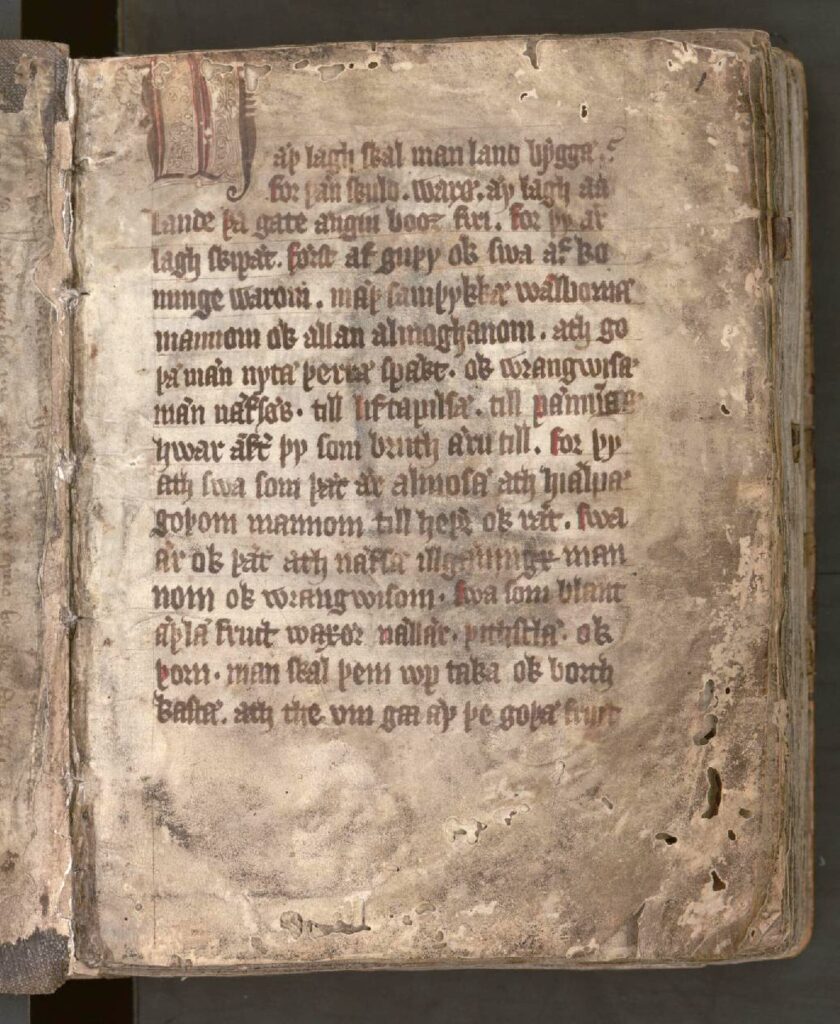 M äþ lagh skal man land bygga .
for þän skuld . waxer . äy lagh aa
lande þa gate angin booz firi . for þy är
lagh skipat . först af guþy ok swa af ko
nunge warom . mäþ samþykkä wälborna
mannom ok allan almoghanom . ath go
þa män nyta þerra späkt . ok wrangwisa
män näfsäs . till liftapilsa . till pänninga
hwar äft þy som bruth äru till . for þy
ath swa som þät är almosa ath hiälpa
goþom mannom till heþr ok rät . swa
är ok þät ath näfsa illgärningx man
nom ok wrangwisom . swa som blant
äþla fruct waxor nällar . þithstla . ok
þorn . man skal þem wp taka ok borth
kasta . ath the um gaa äy þe goþa fruct
1